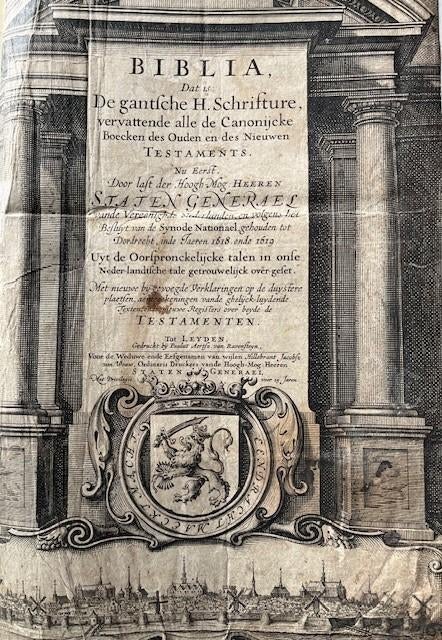 BIBLIA,
Dat is:
De gantsche H. Schrifture,
vervattende alle de Canonijcke
Boecken des Ouden en des Nieuwen
TESTAMENTS.
Nu Eerst,
Door last der Hoogh-Mog: HEEREN
STATEN GENERAEL
vande Vereenighde Nederlanden, en volgens het
Besluyt van de Synode Nationael gehouden tot
Dordrecht, inde Iaeren 1618 ende 1619
Uyt de Oorspronckelijcke talen in onse
Neder-landtsche tale getrouwelijck over-geset.
Met nieuwe by-gevoegde Verklaringen op de duystere
plaetsen, aenteekeningen vande ghelijck-luydende
Texten, ende nieuwe Registers over beyde de
TESTAMENTEN.
Tot LEYDEN
Gedruckt by Paulus Aertsz van Ravensteyn,
Voor de Weduwe ende Erfgenamen van wijlen Hillebrant Iacobsz
van Wouw, Ordinaris Druckers vande Hoogh-Mog: Heeren
STATEN GENERAEL
Met Privilegie voor 15 Jaren
EENDRACHT MAECKT MACHT